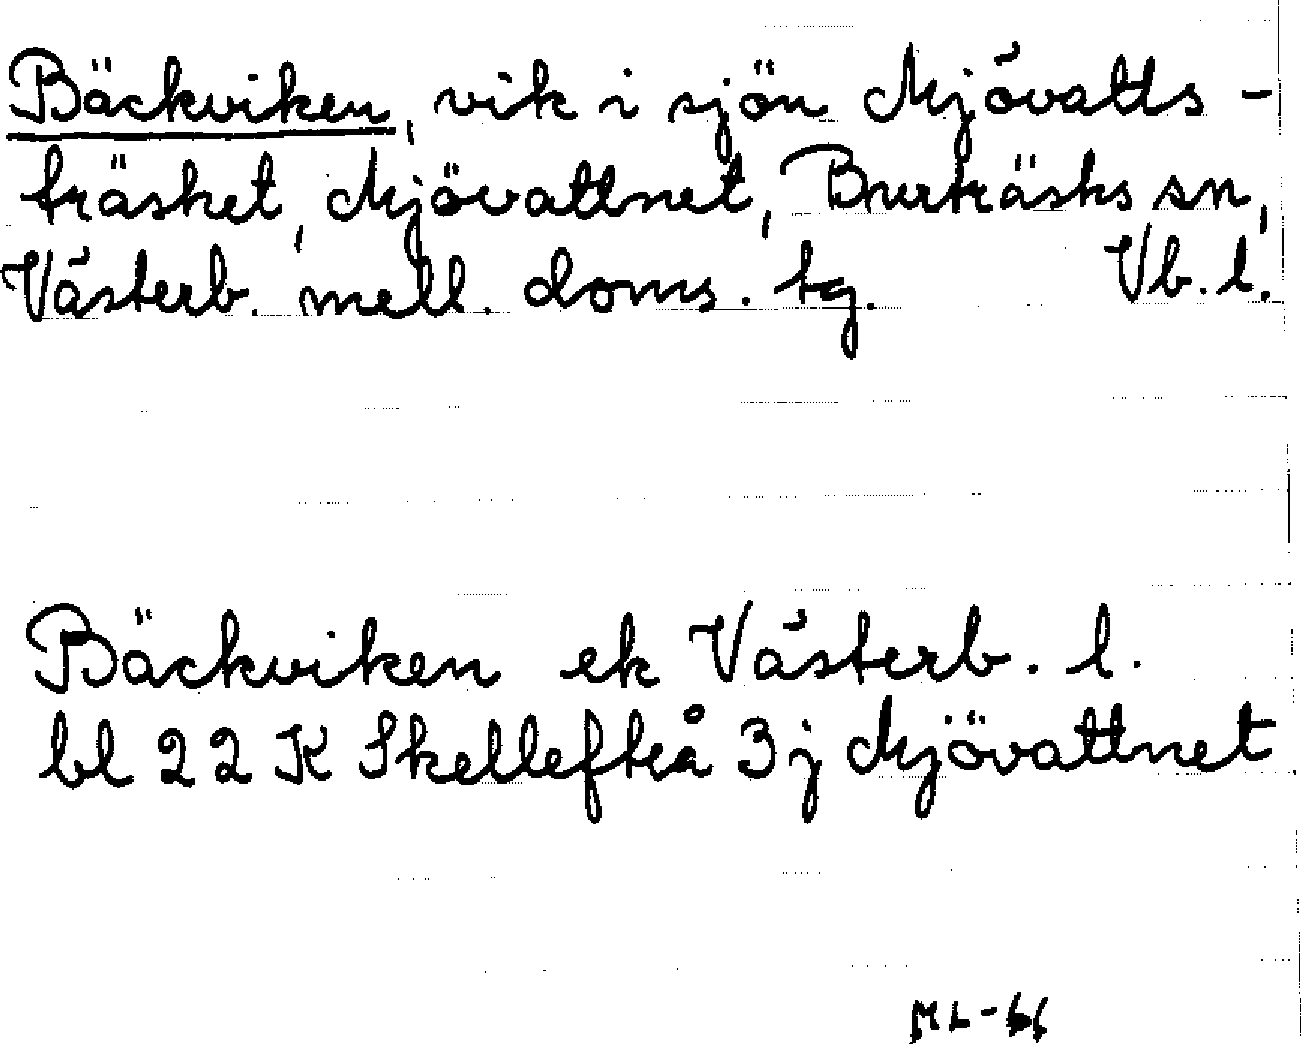 Bäckviken, vik i sjön Mjövatts-
träsket, Mjövattnet, Burträsks sn,
Västerb. mell. doms. tg. Vb. l.
Bäckviken ek Västerb. l.
bl 22 K Skellefteå 3 j Mjövattnet
ML-66